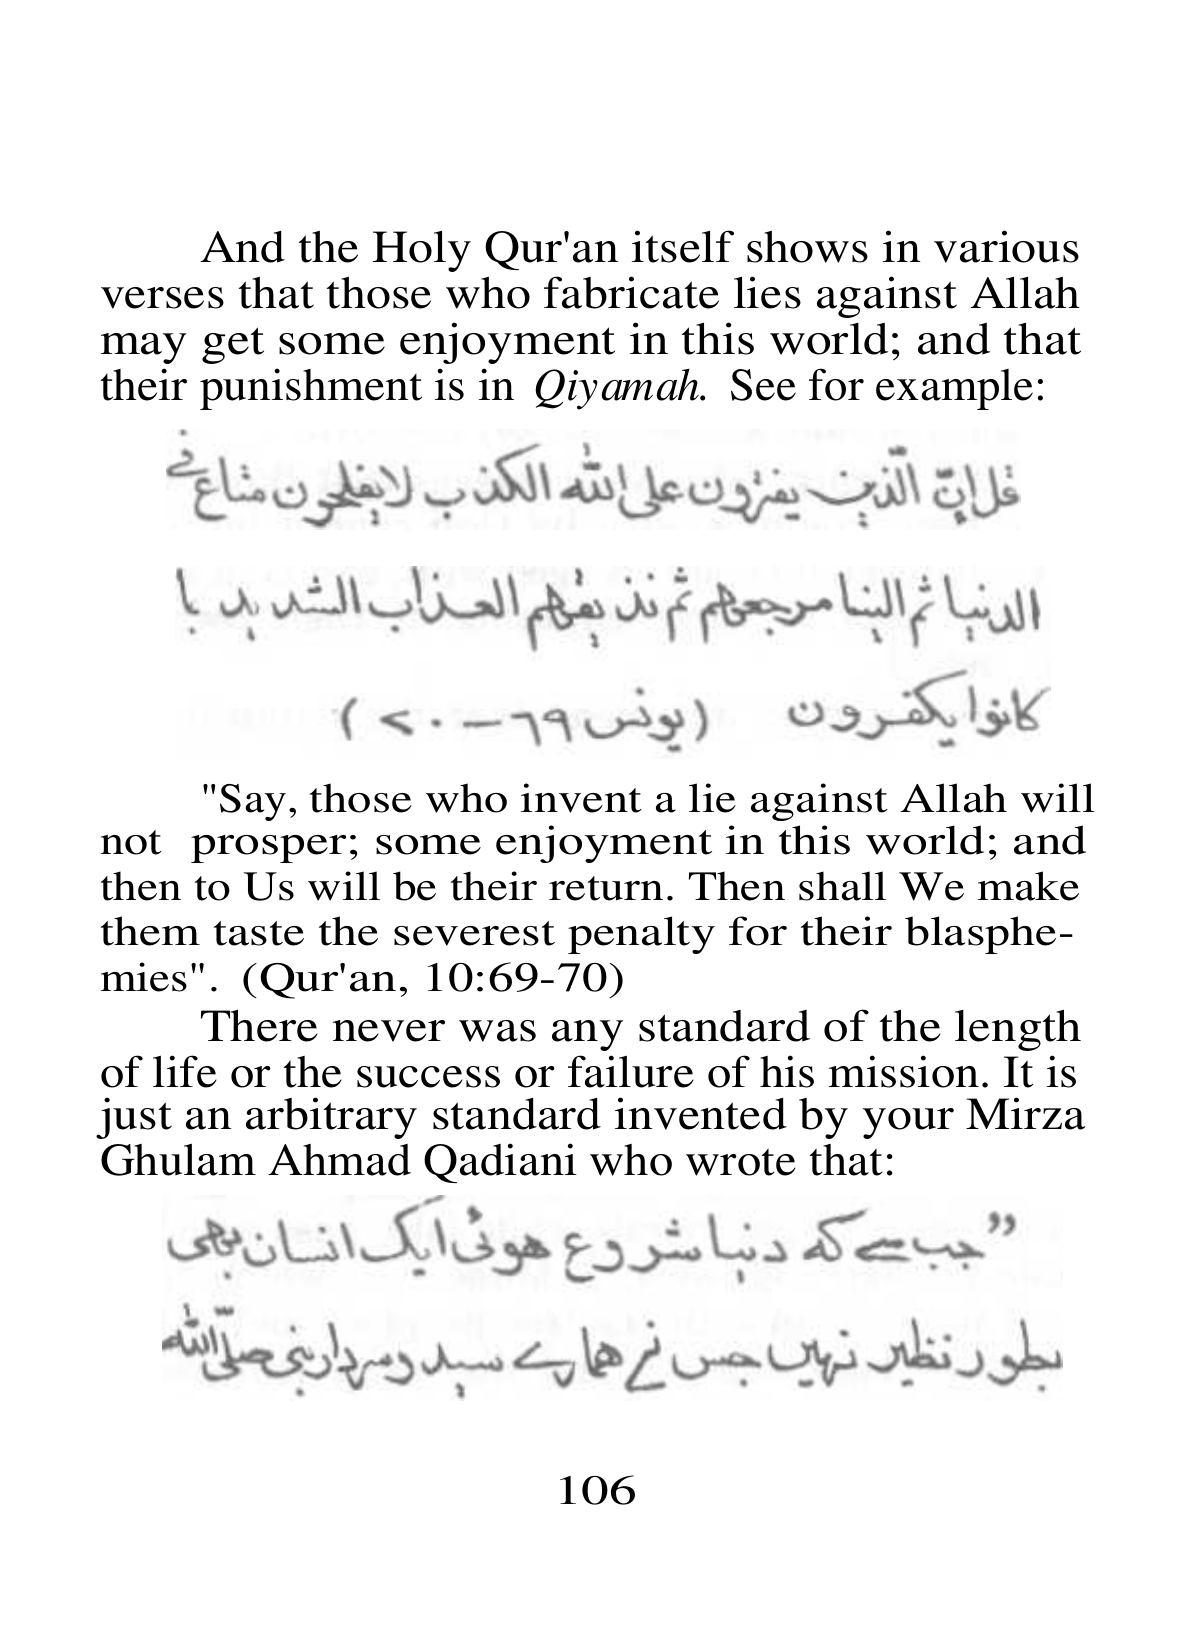 And the Holy Qur'an itself shows in various
verses that those who fabricate lies against Allah
may get some enjoyment in this world; and that
their punishment is in Qiyamah. See for example:
قل إنّ الّذين يفترون على الله الكذب لا يفلحون متاع في
الدنيا ثم الينا مرجعهم ثم نذيقهم العذاب الشديد با
كانوا يكفرون (يونس ٦٩ – ٧٠)
"Say, those who invent a lie against Allah will
not prosper; some enjoyment in this world; and
then to Us will be their return. Then shall We make
them taste the severest penalty for their blasphe-
mies". (Qur'an, 10:69-70)
There never was any standard of the length
of life or the success or failure of his mission. It is
just an arbitrary standard invented by your Mirza
Ghulam Ahmad Qadiani who wrote that:
”جب سے کہ دنیا شروع هوئی ایک انسان بھی
بطور نظیر نہیں جس نے همارے سید و سردار نبی صلّی الله
106